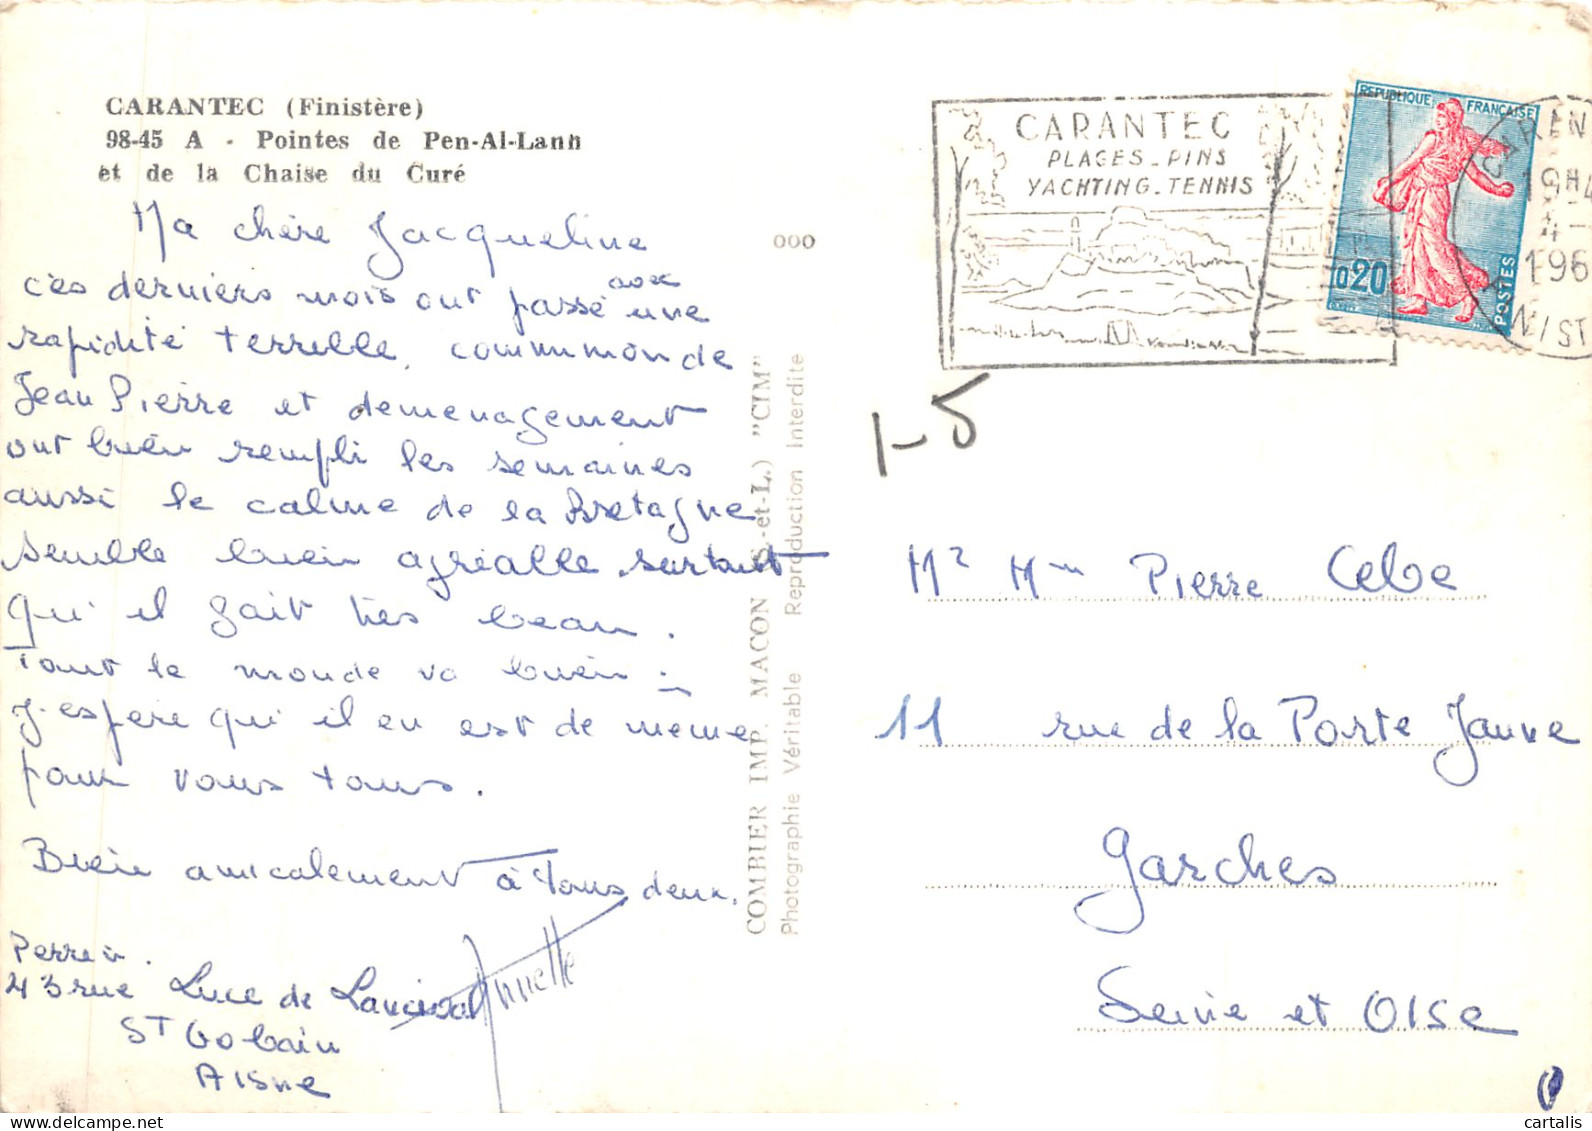 CARANTEC (Finistère)
98-45 A - Pointes de Pen-Al-Lann
et de la Chaise du Curé
Ma chère Jacqueline
ces derniers mois ont passé avec une
rapidité terrible, communion de
Jean Pierre et demenagement
ont bien rempli les semaines
aussi le calme de la Bretagne
semble bien agréable surtout
qui il fait très beau.
Tout le monde va bien
J'espère qui il en est de meme
pour vous tous.
Bien amicalement à tous deux.
Annette
Perrein.
43 rue Luce de Lancival
St Gobain
Aisne
000
COMBIER IMP. MACON (S.-et-L.) "CIM"
Photographie Véritable Reproduction Interdite
CARANTEC
PLAGES_PINS
YACHTING_TENNIS
REPUBLIQUE FRANÇAISE
0,20
POSTES
19H
4-
196
NIST
1-5
Mr Mm Pierre Cebe
11 rue de la Porte Jaune
Garches
Seine et Oise
cartalis